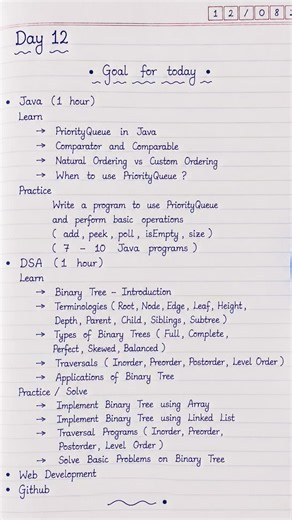 12/082
Day 12
• Goal for today •
• Java (1 hour)
Learn
→ PriorityQueue in Java
→ Comparator and Comparable
→ Natural Ordering vs Custom Ordering
→ When to use PriorityQueue ?
Practice
Write a program to use PriorityQueue
and perform basic operations
( add, peek, poll, isEmpty, size )
( 7 - 10 Java programs )
• DSA (1 hour)
Learn
→ Binary Tree - Introduction
→ Terminologies ( Root, Node, Edge, Leaf, Height,
Depth, Parent, Child, Siblings, Subtree )
→ Types of Binary Trees ( Full, Complete,
Perfect, Skewed, Balanced )
→ Traversals ( Inorder, Preorder, Postorder, Level Order )
→ Applications of Binary Tree
Practice / Solve
→ Implement Binary Tree using Array
→ Implement Binary Tree using Linked List
→ Traversal Programs ( Inorder, Preorder,
Postorder, Level Order )
→ Solve Basic Problems on Binary Tree
• Web Development
• Github